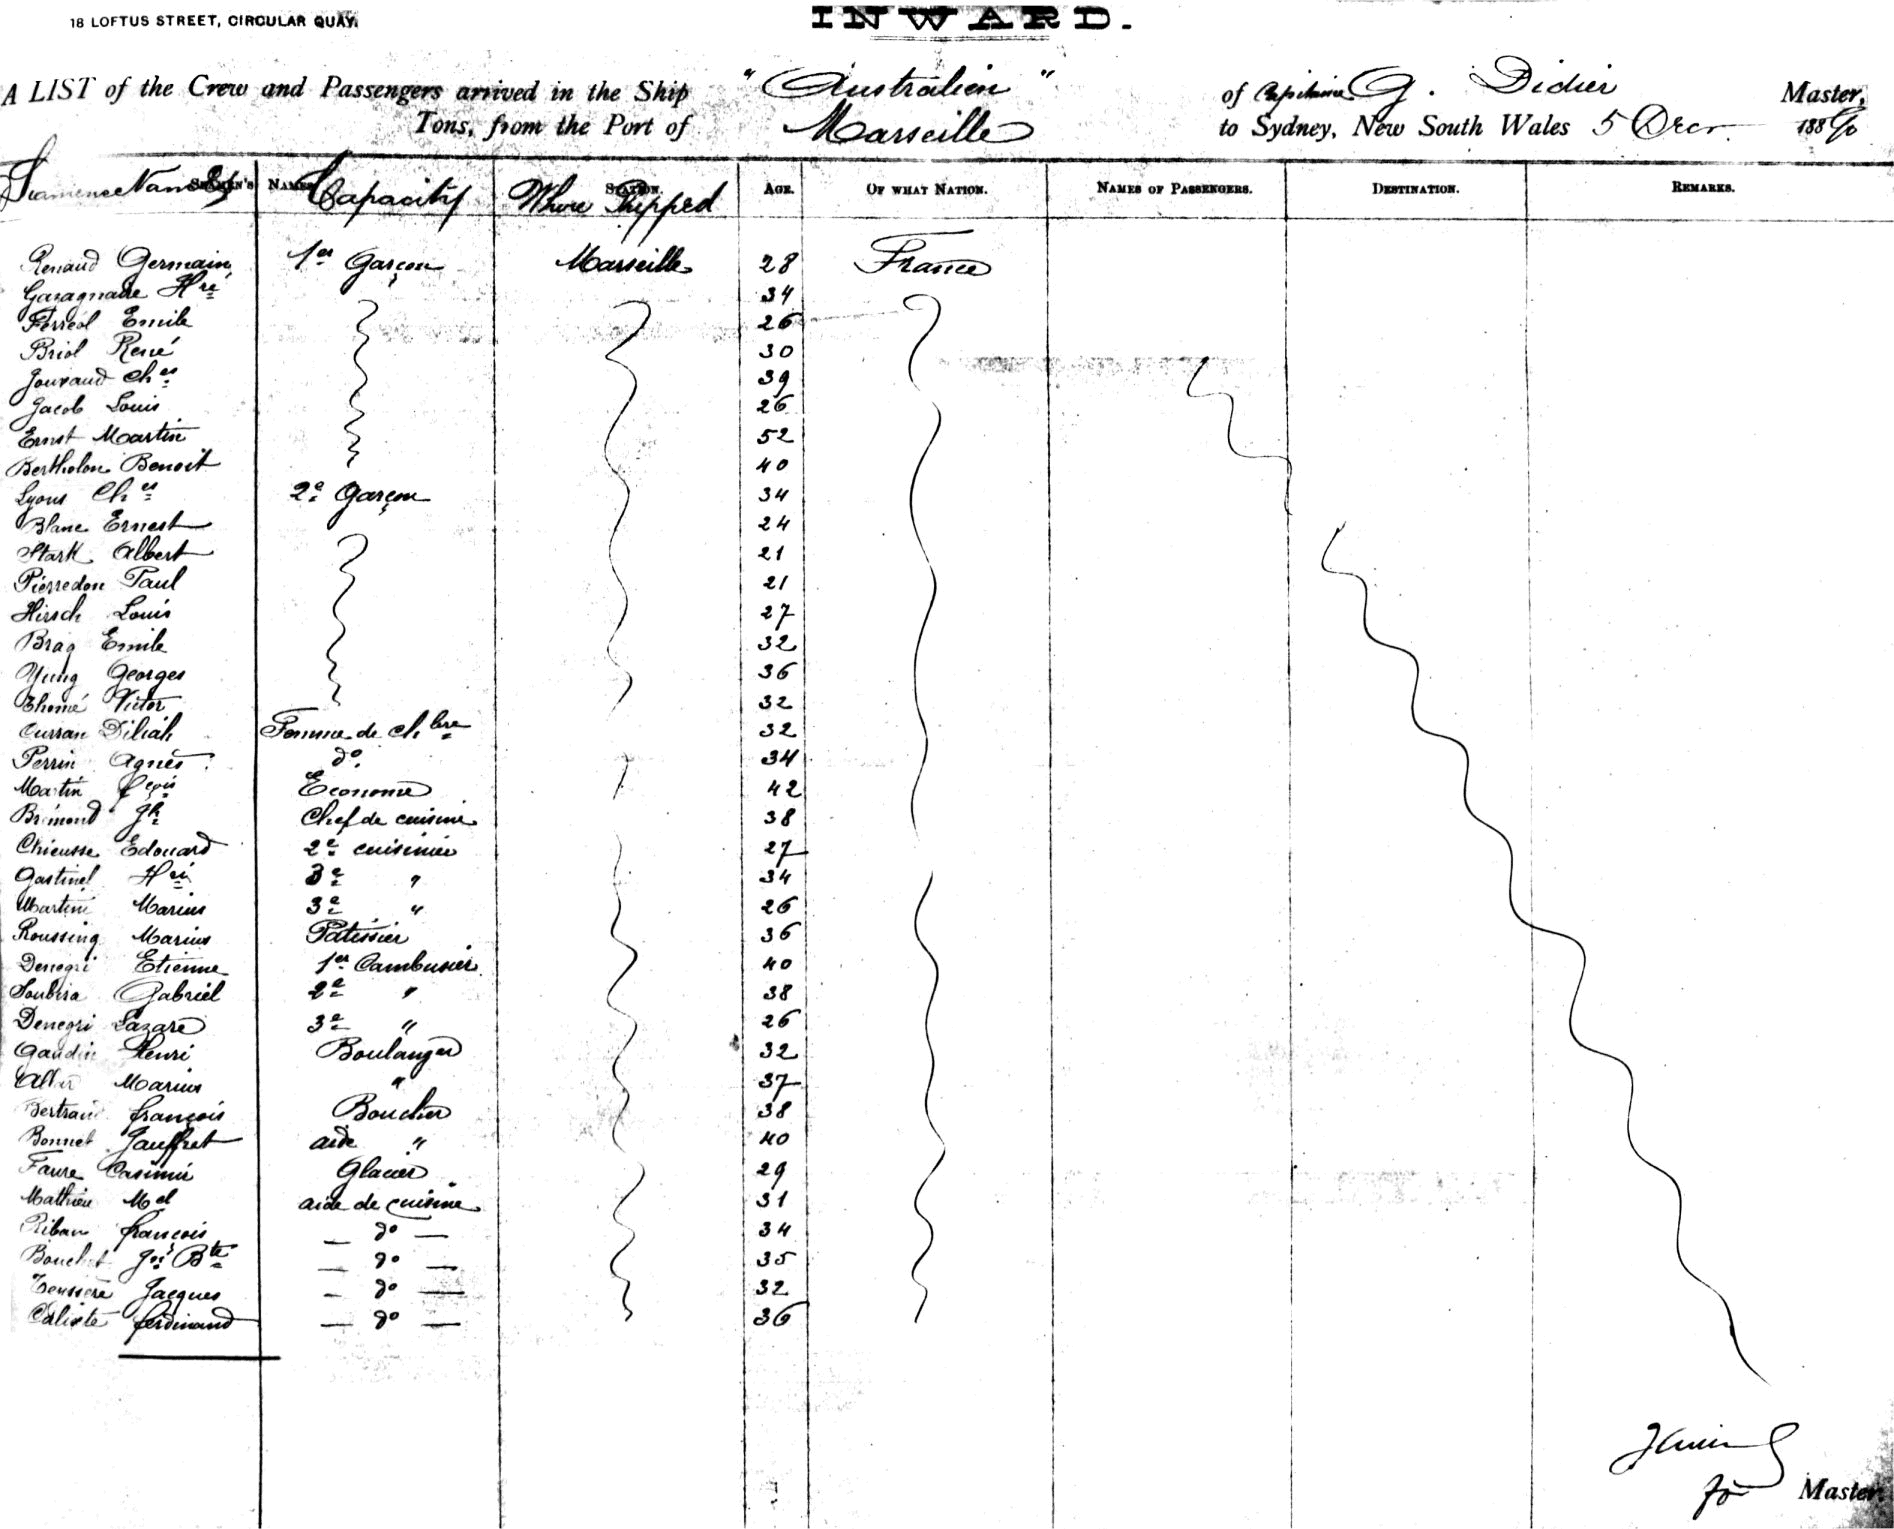 18 LOFTUS STREET, CIRCULAR QUAY.
INWARD.
A LIST of the Crew and Passengers arrived in the Ship "Australien" of Capitaine G. Didier Master,
Tons, from the Port of Marseille to Sydney, New South Wales 5 Decr. 1890
SEAMEN'S NAMES Capacity STATION. Where Shipped AGE. OF WHAT NATION. NAMES OF PASSENGERS. DESTINATION. REMARKS.
Renaud Germain 1er Garçon Marseille 28 France
Garagnade Hri 34
Ferréol Emile 26
Briol René 30
Jouvaud Ches 39
Jacob Louis 26
Ernst Martin 52
Bertholon Benoit 40
Lyons Ches 2e Garçon 34
Blanc Ernest 24
Stark Albert 21
Pierredon Paul 21
Hirsch Louis 27
Brag Emile 32
Yung Georges 36
Thomé Victor 32
Curran Diliah Femme de chbre 32
Perrin Agnès do 34
Martin Régis Econome 42
Brémond Jh Chef de cuisine 38
Chieusse Edouard 2e cuisinier 27
Gastinel Hri 3e " 34
Martini Marius 3e " 26
Roussing Marius Patissier 36
Denegri Etienne 1er Cambusier 40
Soubira Gabriel 2e " 38
Denegri Lazare 3e " 26
Gaudin Henri Boulanger 32
Marius " 37
Bertrand françois Boucher 38
Bonnet Jauffret aide " 40
Faure Casimir Glacier 29
Mathieu Mel aide de cuisine 31
Ribau françois — do — 34
Bouchet Jn Bte — do — 35
Teyssère Jacques — do — 32
Caliste ferdinand — do — 36
for Master.